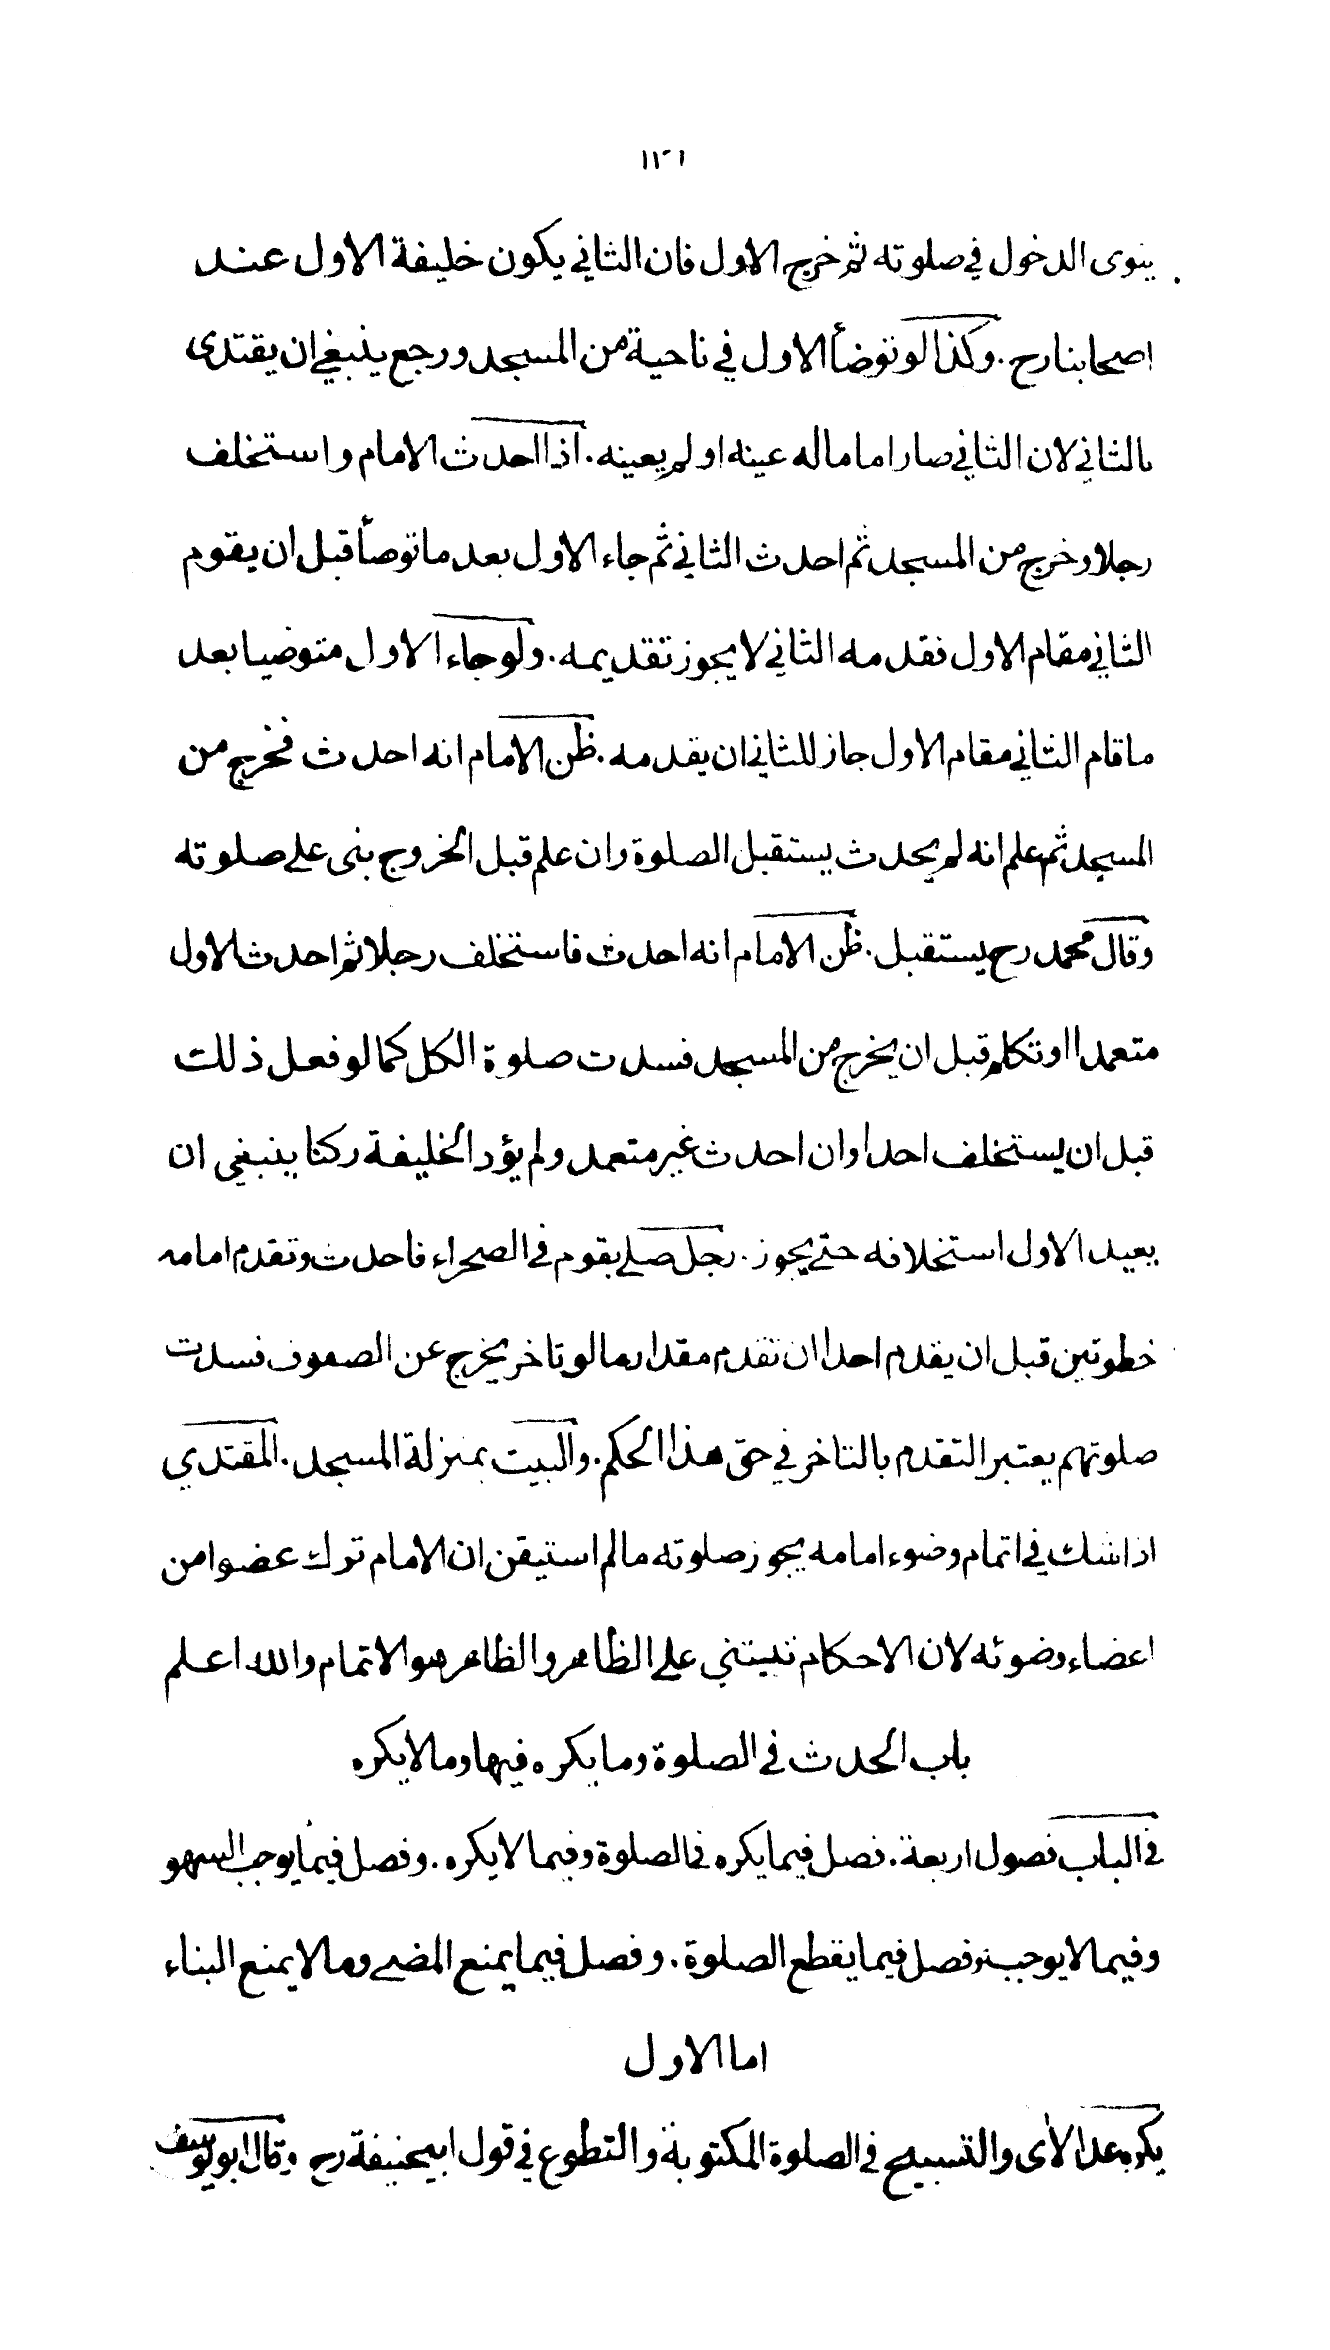 ينوى الدخول في صلوته ثم خرج الاول فان الثاني يكون خليفة الاول عند
اصحابنا رح . وكذا لو توضأ الاول في ناحية من المسجد ورجع ينبغي ان يقتدى
بالثاني لان الثاني صار اماما له عينه او لم يعينه . اذا احدث الامام واستخلف
رجلا وخرج من المسجد ثم احدث الثاني ثم جاء الاول بعد ما توضأ قبل ان يقوم
الثاني مقام الاول فقدمه الثاني لا يجوز تقديمه . ولو جاء الاول متوضيا بعد
ما قام الثاني مقام الاول جاز للثاني ان يقدمه . ظن الامام انه احدث فخرج من
المسجد ثم علم انه لم يحدث يستقبل الصلوة وان علم قبل الخروج بنى على صلوته
وقال محمد رح يستقبل . ظن الامام انه احدث فاستخلف رجلا ثم احدث الاول
متعمدا او تكلم قبل ان يخرج من المسجد فسدت صلوة الكل كما لو فعل ذلك
قبل ان يستخلف احدا وان احدث غير متعمد ولم يؤد الخليفة ركنا ينبغي ان
يعيد الاول استخلافه حتى يجوز . رجل صلى بقوم في الصحراء فاحدث وتقدم امامه
خطوتين قبل ان يقدم احدا ان تقدم مقدار ما لو تاخر يخرج عن الصفوف فسدت
صلوتهم يعتبر التقدم بالتاخر في حق هذا الحكم . والبيت بمنزلة المسجد . المقتدي
اذا شك في اتمام وضوء امامه يجوز صلوته مالم استيقن ان الامام ترك عضوا من
اعضاء وضوئه لان الاحكام تبتني على الظاهر والظاهر هو الاتمام والله اعلم
باب الحدث في الصلوة وما يكره فيها وما لا يكره
في الباب فصول اربعة . فصل فيما يكره في الصلوة وفيما لا يكره . وفصل فيما يوجب السهو
وفيما لا يوجبه وفصل فيما يقطع الصلوة . وفصل فيما يمنع المضى وما لا يمنع البناء
اما الاول
يكره عد الاى والتسبيح في الصلوة المكتوبة والتطوع في قول ابيحنيفة رح وقال ابو يوسف